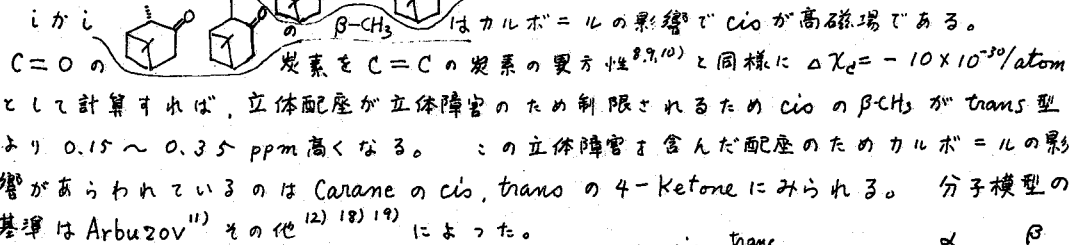 iかi の β-CH3 はカルボニルの影響でcisが高磁場である。
C=Oの 炭素をC=Cの炭素の異方性8,9,10)と同様に Δχc=-10×10-30/atom
として計算すれば,立体配座が立体障害のため制限されるためcisのβ-CH3がtrans型
より0.15~0.35 ppm高くなる。 この立体障害を含んだ配座のためカルボニルの影
響があらわれているのはCaraneのcis, transの4-Ketoneにみられる。 分子模型の
基準はArbuzov11)その他12)18)19)によった。
trans α β